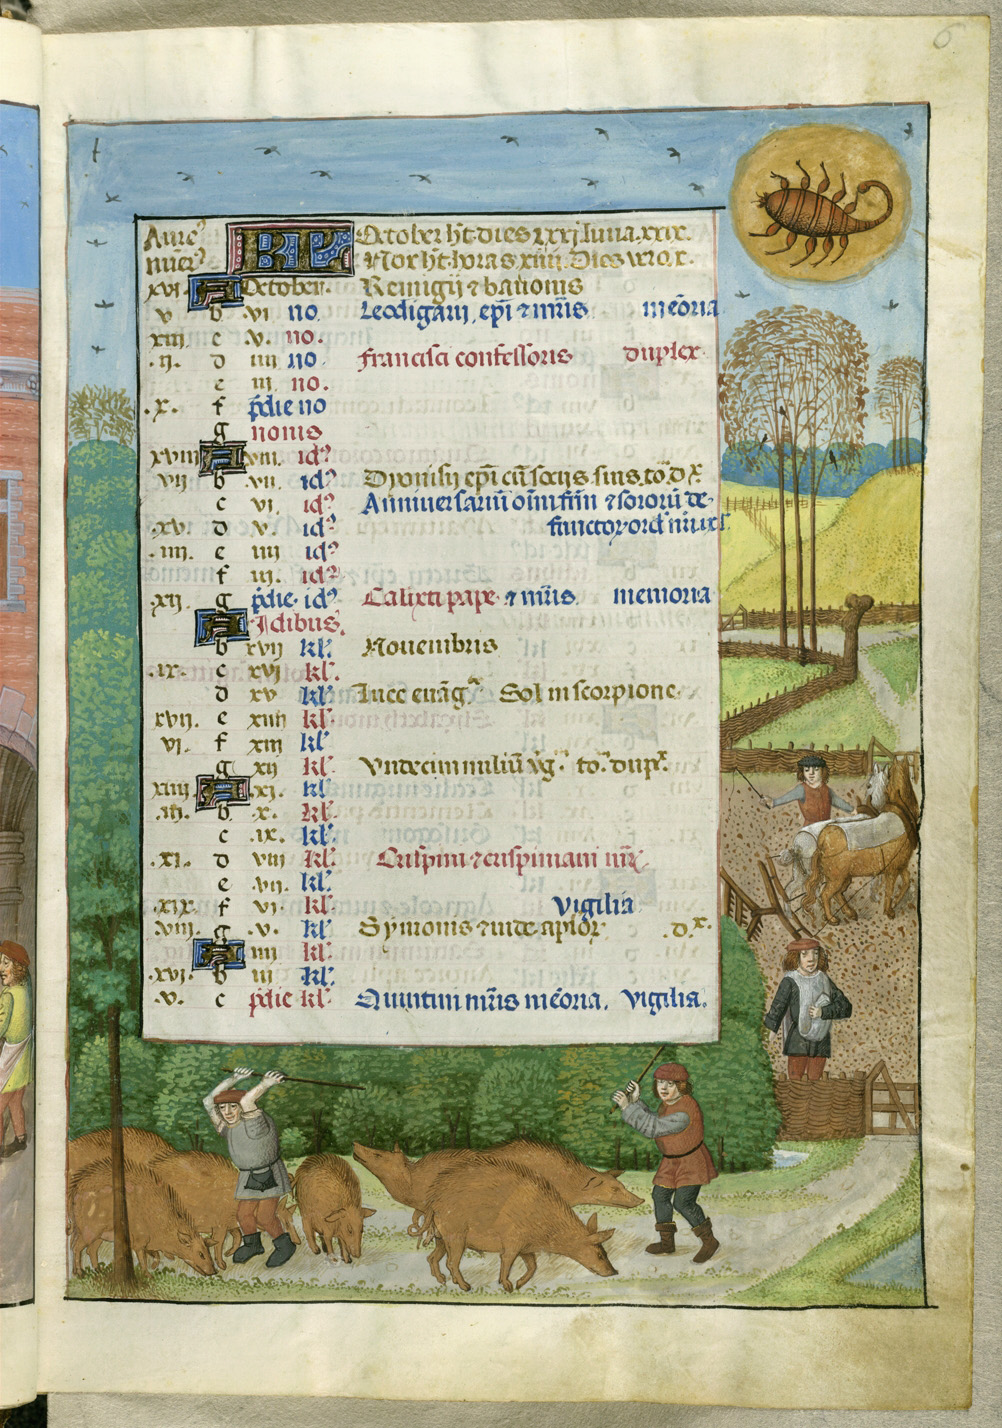 Aureꝰ KL October hꝫ dies xxxi luna xxix.
nueꝰ Nox hꝫ horas xiiii. Dies vero x.
xvi A October. Remigii ⁊ bauonis
v b vi no. Leodigarii, ep̄i ⁊ mr̄is memōria
xiii c v. no.
.ii. d iiii no francisci confessoris duplex
e iii no.
.x. f p̄die no
g nonis
xviii A viii. idꝰ
vii b vii. idꝰ Dyonisii ep̄i cū sociis suis. to. dx
c vi. idꝰ Anniuersariū om̄i fr̄m ⁊ sororū de-
xv. d v. idꝰ functoꝝ ord
.iiii. e iiii idꝰ
f iii. idꝰ
xii. g p̄die. idꝰ Calixti pape ⁊ mr̄is. memoria
A Idibus.
b xvii kl' Nouembris
.ix. c xvi kl'.
d xv kl' Luce euāg. Sol in scorpione
xvii. e xiiii kl'
vi. f xiii kl'
g xii kl' Vndecim miliū v̄g. to. dupx.
xiiii A xi. kl'
.iii. b x. kl'
c ix. kl'
.xi. d viii kl' Crispini ⁊ crispiniani mr̄
e vii. kl'
xix. f vi. kl' Vigilia
viii. g .v. kl' Symonis ⁊ iude aplor .dx.
A iiii kl'
xvi. b iii kl'
.v. c p̄die kl' Quintini mr̄is memōria. vigilia.
6